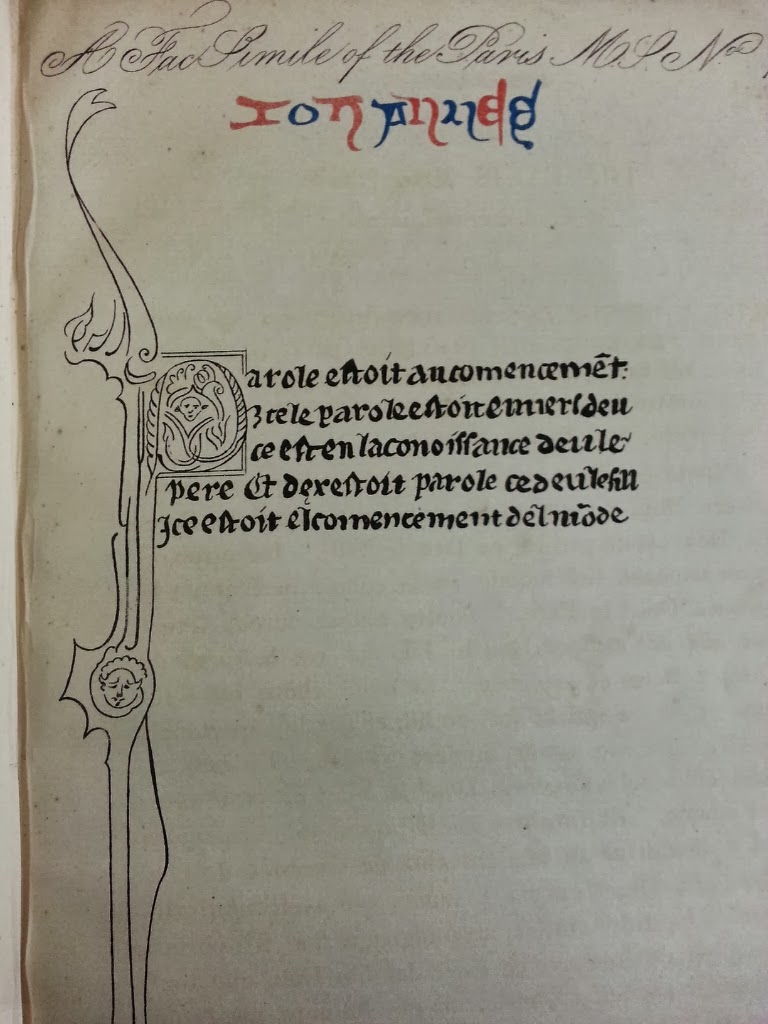 A Fac Simile of the Paris M.S. No
Iohannes
Parole estoit au comencemēt:
⁊ cele parole estoit enuers deu
ce est en la conoissance deu le
pere Et dex estoit parole ce deu le fill
Jce estoit el comencement del mōde